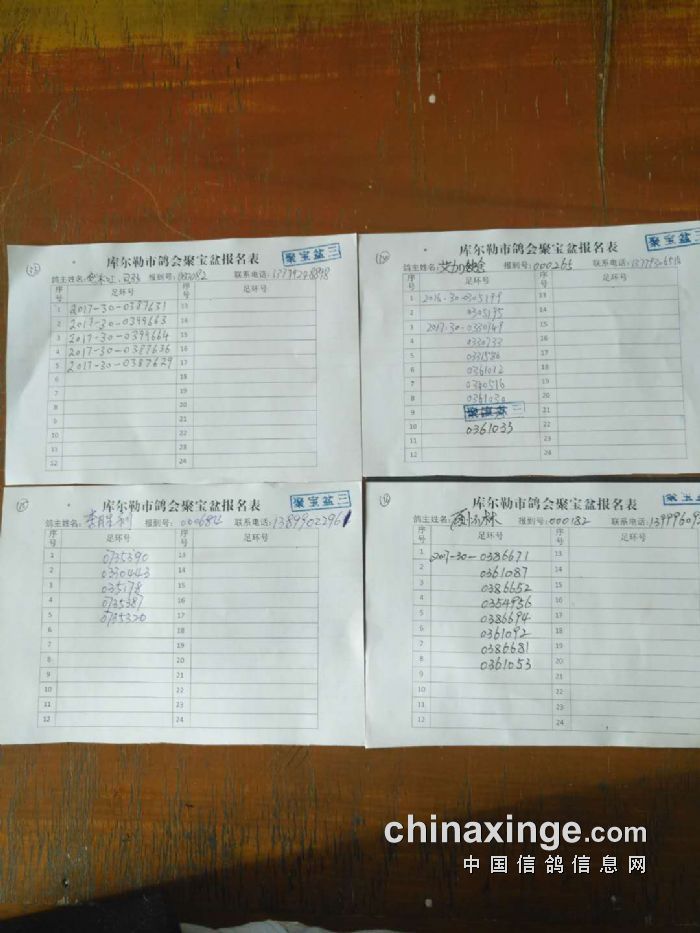 聚宝盆三
库尔勒市鸽会聚宝盆报名表
鸽主姓名: 报到号: 联系电话:
序号 足环号 序号 足环号
1 2017-30-0387631 13
2 2017-30-0399663 14
3 2017-30-0399664 15
4 2017-30-0387636 16
5 2017-30-0387629 17
6 18
7 19
8 20
9 21
10 22
11 23
12 24
聚宝盆三
库尔勒市鸽会聚宝盆报名表
鸽主姓名: 报到号: 000265 联系电话:
序号 足环号 序号 足环号
1 2016-30-0305199 13
2 0305195 14
3 2017-30-0330149 15
4 0330733 16
5 0331586 17
6 0361012 18
7 0340516 19
8 0361030 20
9 聚宝盆三 21
10 0361033 22
11 23
12 24
聚宝盆三
库尔勒市鸽会聚宝盆报名表
鸽主姓名: 李胜利 报到号: 000684 联系电话: 13899022961
序号 足环号 序号 足环号
1 0735390 13
2 0330443 14
3 035178 15
4 0735387 16
5 0735320 17
6 18
7 19
8 20
9 21
10 22
11 23
12 24
聚宝盆三
库尔勒市鸽会聚宝盆报名表
鸽主姓名: 报到号: 000182 联系电话: 139996092
序号 足环号 序号 足环号
1 2017-30-0386671 13
2 0361087 14
3 0386652 15
4 0354956 16
5 0386694 17
6 0361092 18
7 0386681 19
8 0361053 20
9 21
10 22
11 23
12 24
chinaxinge.com
中国信鸽信息网